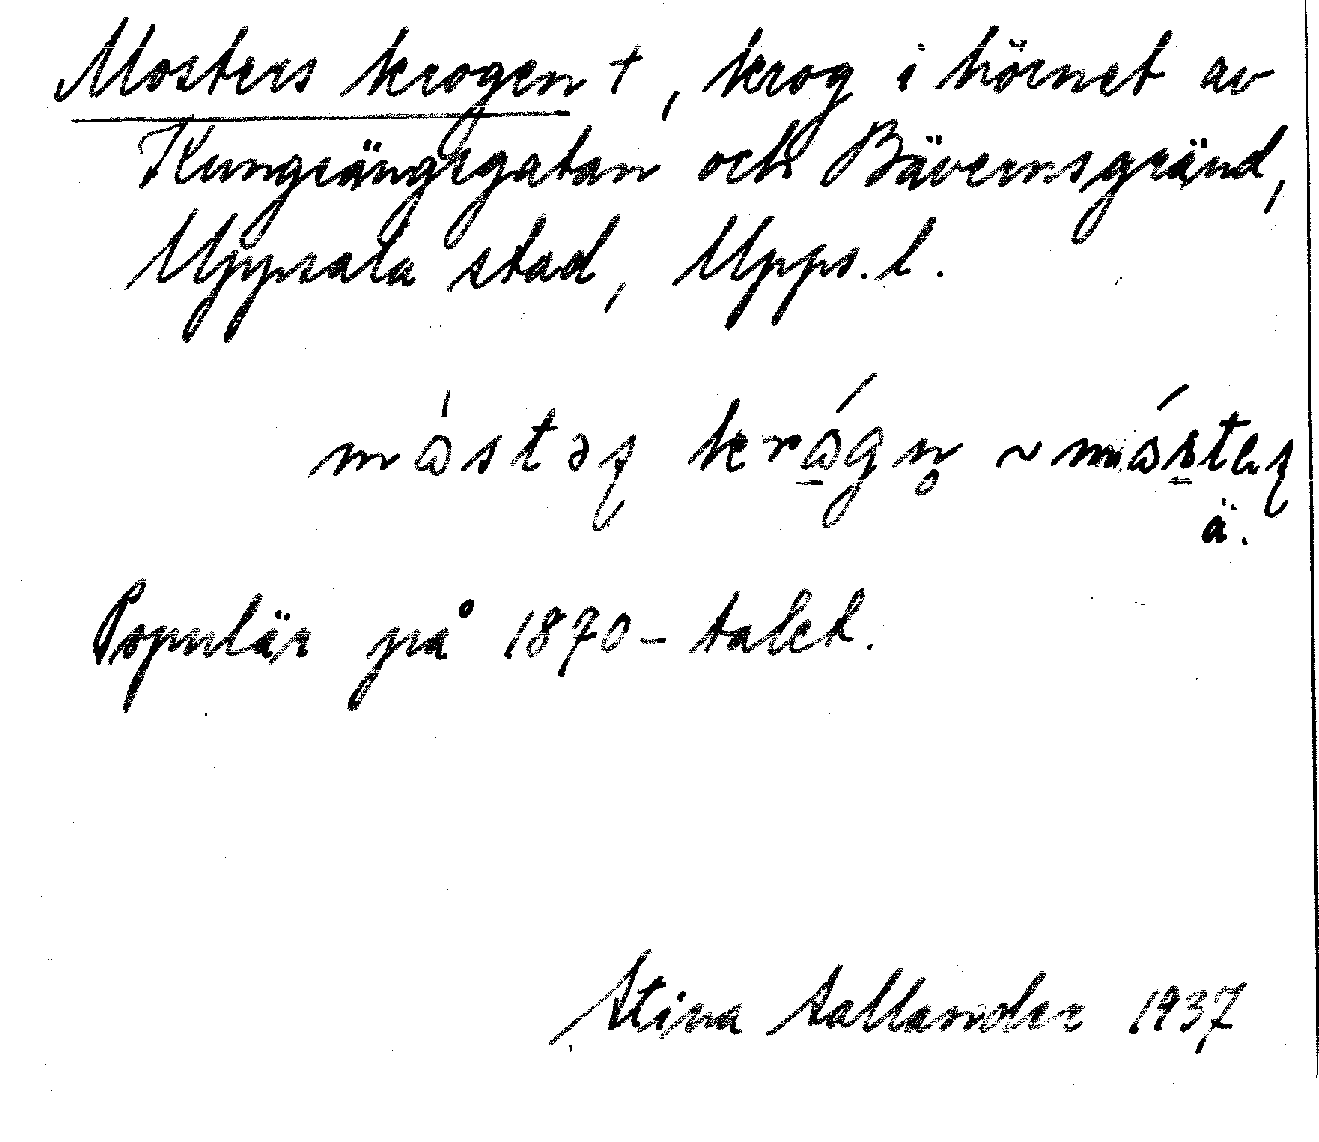 Mosters krogen +, krog i hörnet av
Kungsängsgatan och Bävernsgränd,
Uppsala stad, Upps. l.
ä.
Populär på 1870-talet.
Stina Sallander 1937